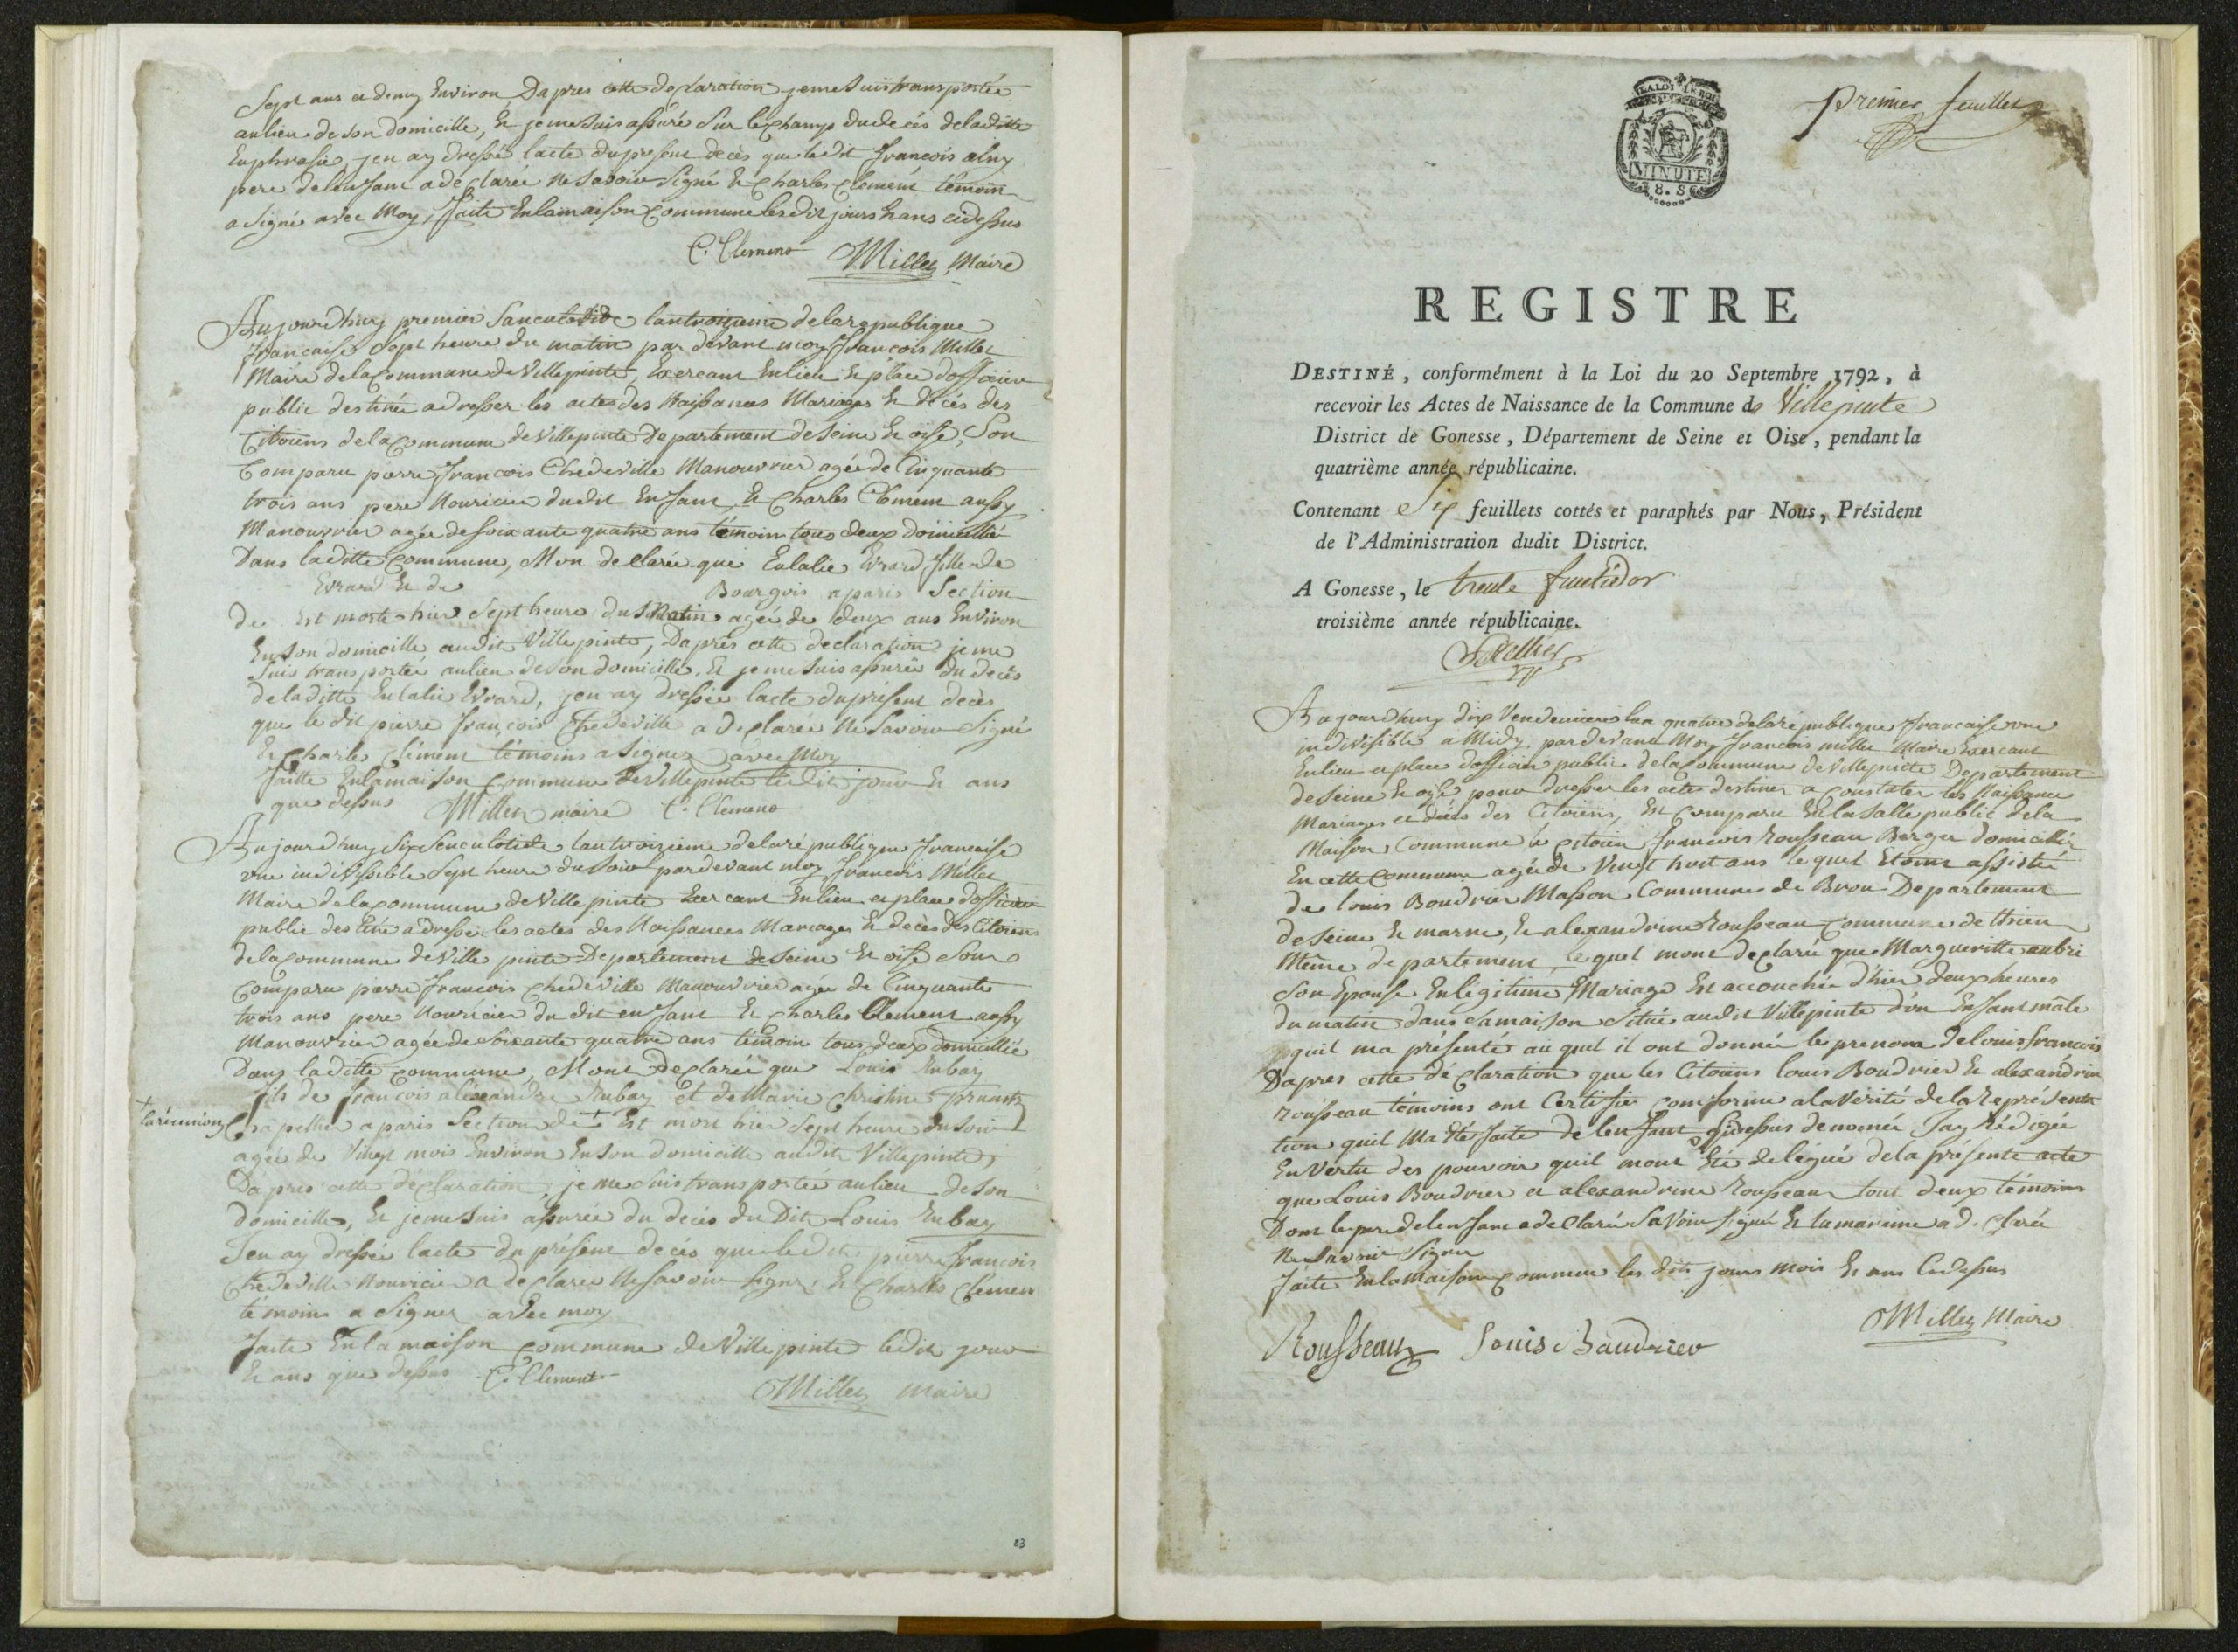 Sept ans et demy Environ Dapres cette declaration je me Suis transportée
au lieu de son domicille, Et je me Suis assuré Sur le champ du decés de laditte
Euphrasie, jen ay dressé lacte du present decès que ledit francois
pere de lenfant a déclarée ne Savoir Signé Et Charles Clement témoin
a Signé avec Moy, faite En la maison Commune les dit jours Et ans cidessus
C. Clement Millet Maire
Aujourdhuy premier Sanculotide lantroizieme de la republique
francaise Sept heure du matin par devant moy francois Millet
Maire de la Commune de Villepinte, Exercant En lieu Et place dofficier
public destinée a dresser les actes des Naissances Mariages Et décés des
Citoiens de la Commune de Villepinte Departement de Seine Et oise, Son
Comparu pierre francois Chedeville Manouvrier agée de Cinquante
trois ans pere Nouricier dudit Enfant Et Charles Clement aussy
Manouvrier agée de soixante quatre ans témoin tous deux domicillié
Dans laditte Commune, Mon declarée que Eulalie Evrard fille de
Evrard Et de Bourgois a paris Section
de Est morte hier Sept heure du Matin agée de deux ans Environ
En son domicille audit Villepinte, Daprès cette declaration je me
Suis transportée au lieu de son domicille Et je me Suis assurée du decès
de laditte Eulalie Evrard, jen ay dressée lacte du présent decès
que le dit pierre françois Chedeville a declarée Ne Savoir Signé
Et Charle Clément témoins a Signez avec Moy
faitte En la maison Commune de Villepinte ledit jour Et ans
que dessus Millet maire C. Clement
Aujourdhuy Six Senculotide lantroizieme de la république francaise
une indivisible Sept heure du Soir par devant moy francois Millet
Maire de la commune de Villepinte Exercant En lieu et place dofficier
public destiné a dressé les actes des Naissances Mariages Et decès des Citoiens
de la Commune de Ville pinte Departement de Seine Et oise Sont
Comparu pierre francois Chedeville Manouvrier agée de Cinquante
trois ans pere Nouricier du dit enfant Et Charles Clement aussy
Manouvrier agée de Soixante quatre ans témoin tous deux domicillié
Dans laditte Commune, Mont Declarée que Louis Aubay
fils de francois aléxandre Aubay et de Marie Christine
+
la réunion
Chapellier a paris Section de + Est mort hier Sept heure du Soir
agée de Vingt mois Environ En son domicille audit Villepinte,
Da pres cette déclaration, je me Suis transportée au lieu de Son
domicille, Et je me Suis assurée du decès du Dit Louis Aubay
Jen ay dressée lacte du présent decès que le dit pierre francois
Chedeville Nouricier a declarée Ne Savoir Signer, Et Charles Clement
témoins a Signer avec moy
faite En la maison commune de Villepinte ledit jour
Et ans que dessus C. Clement
Millet maire
23
LA LOI LE ROI
MINUTE
8. S
premier feuillet
REGISTRE
DESTINÉ, conformément à la Loi du 20 Septembre 1792, à
recevoir les Actes de Naissance de la Commune de Villepinte
District de Gonesse, Département de Seine et Oise, pendant la
quatrième année républicaine.
Contenant Six feuillets cottés et paraphés par Nous, Président
de l'Administration dudit District.
A Gonesse, le trente fructidor
troisième année républicaine.
Aujourdhuy dix Vendemiere lan quatre de la république francaise une
indivisible a Midy par devant Moy francois millet Maire Exercant
En lieu et place dofficier public de la Commune de Villepinte Departement
de Seine Et oise pour dresser les actes destiner a constater les Naissance
Mariages et décès des Citoiens, Est Comparu En la Salle public de la
Maison Commune le Citoien francois Rousseau Berger domicillié
En cette Commune agé de Vingt huit ans lequel Etoint assisté
de louis Boudrier Masson Commune de Brou Departement
de Seine Et marne, Et alexandrine Rousseau Commune de thieu
Même departement, lequel mont declaré que Margueritte aubri
Son Epouse En légitime Mariage Est accouchée d'hier deux heures
du matin dans Samaison Située audit Villepinte d'un Enfant mâle
quil ma présenté au quel il ont donnée le prenom De louis francois
Dapres cette déclaration que les Citoiens louis Boudrier Et alexandrine
Rousseau témoins ont Certifiée conforme a la Vérité de la Représenta
tion quil Ma Eté faite de lenfant cy dessus denomée Jay Rédigée
En Vertu des pouvoir quil mont Eté delégué de la présente acte
que Louis Boudrier et alexandrine Rousseau tout deux témoins
Dont le pere de lenfant a declaré Savoir signé Et la maraine a declarée
Ne Savoir Signer
faite En la Maison commune les dits jours Mois Et ans Cidessus
Millet Maire
Rousseau Louis Baudrier